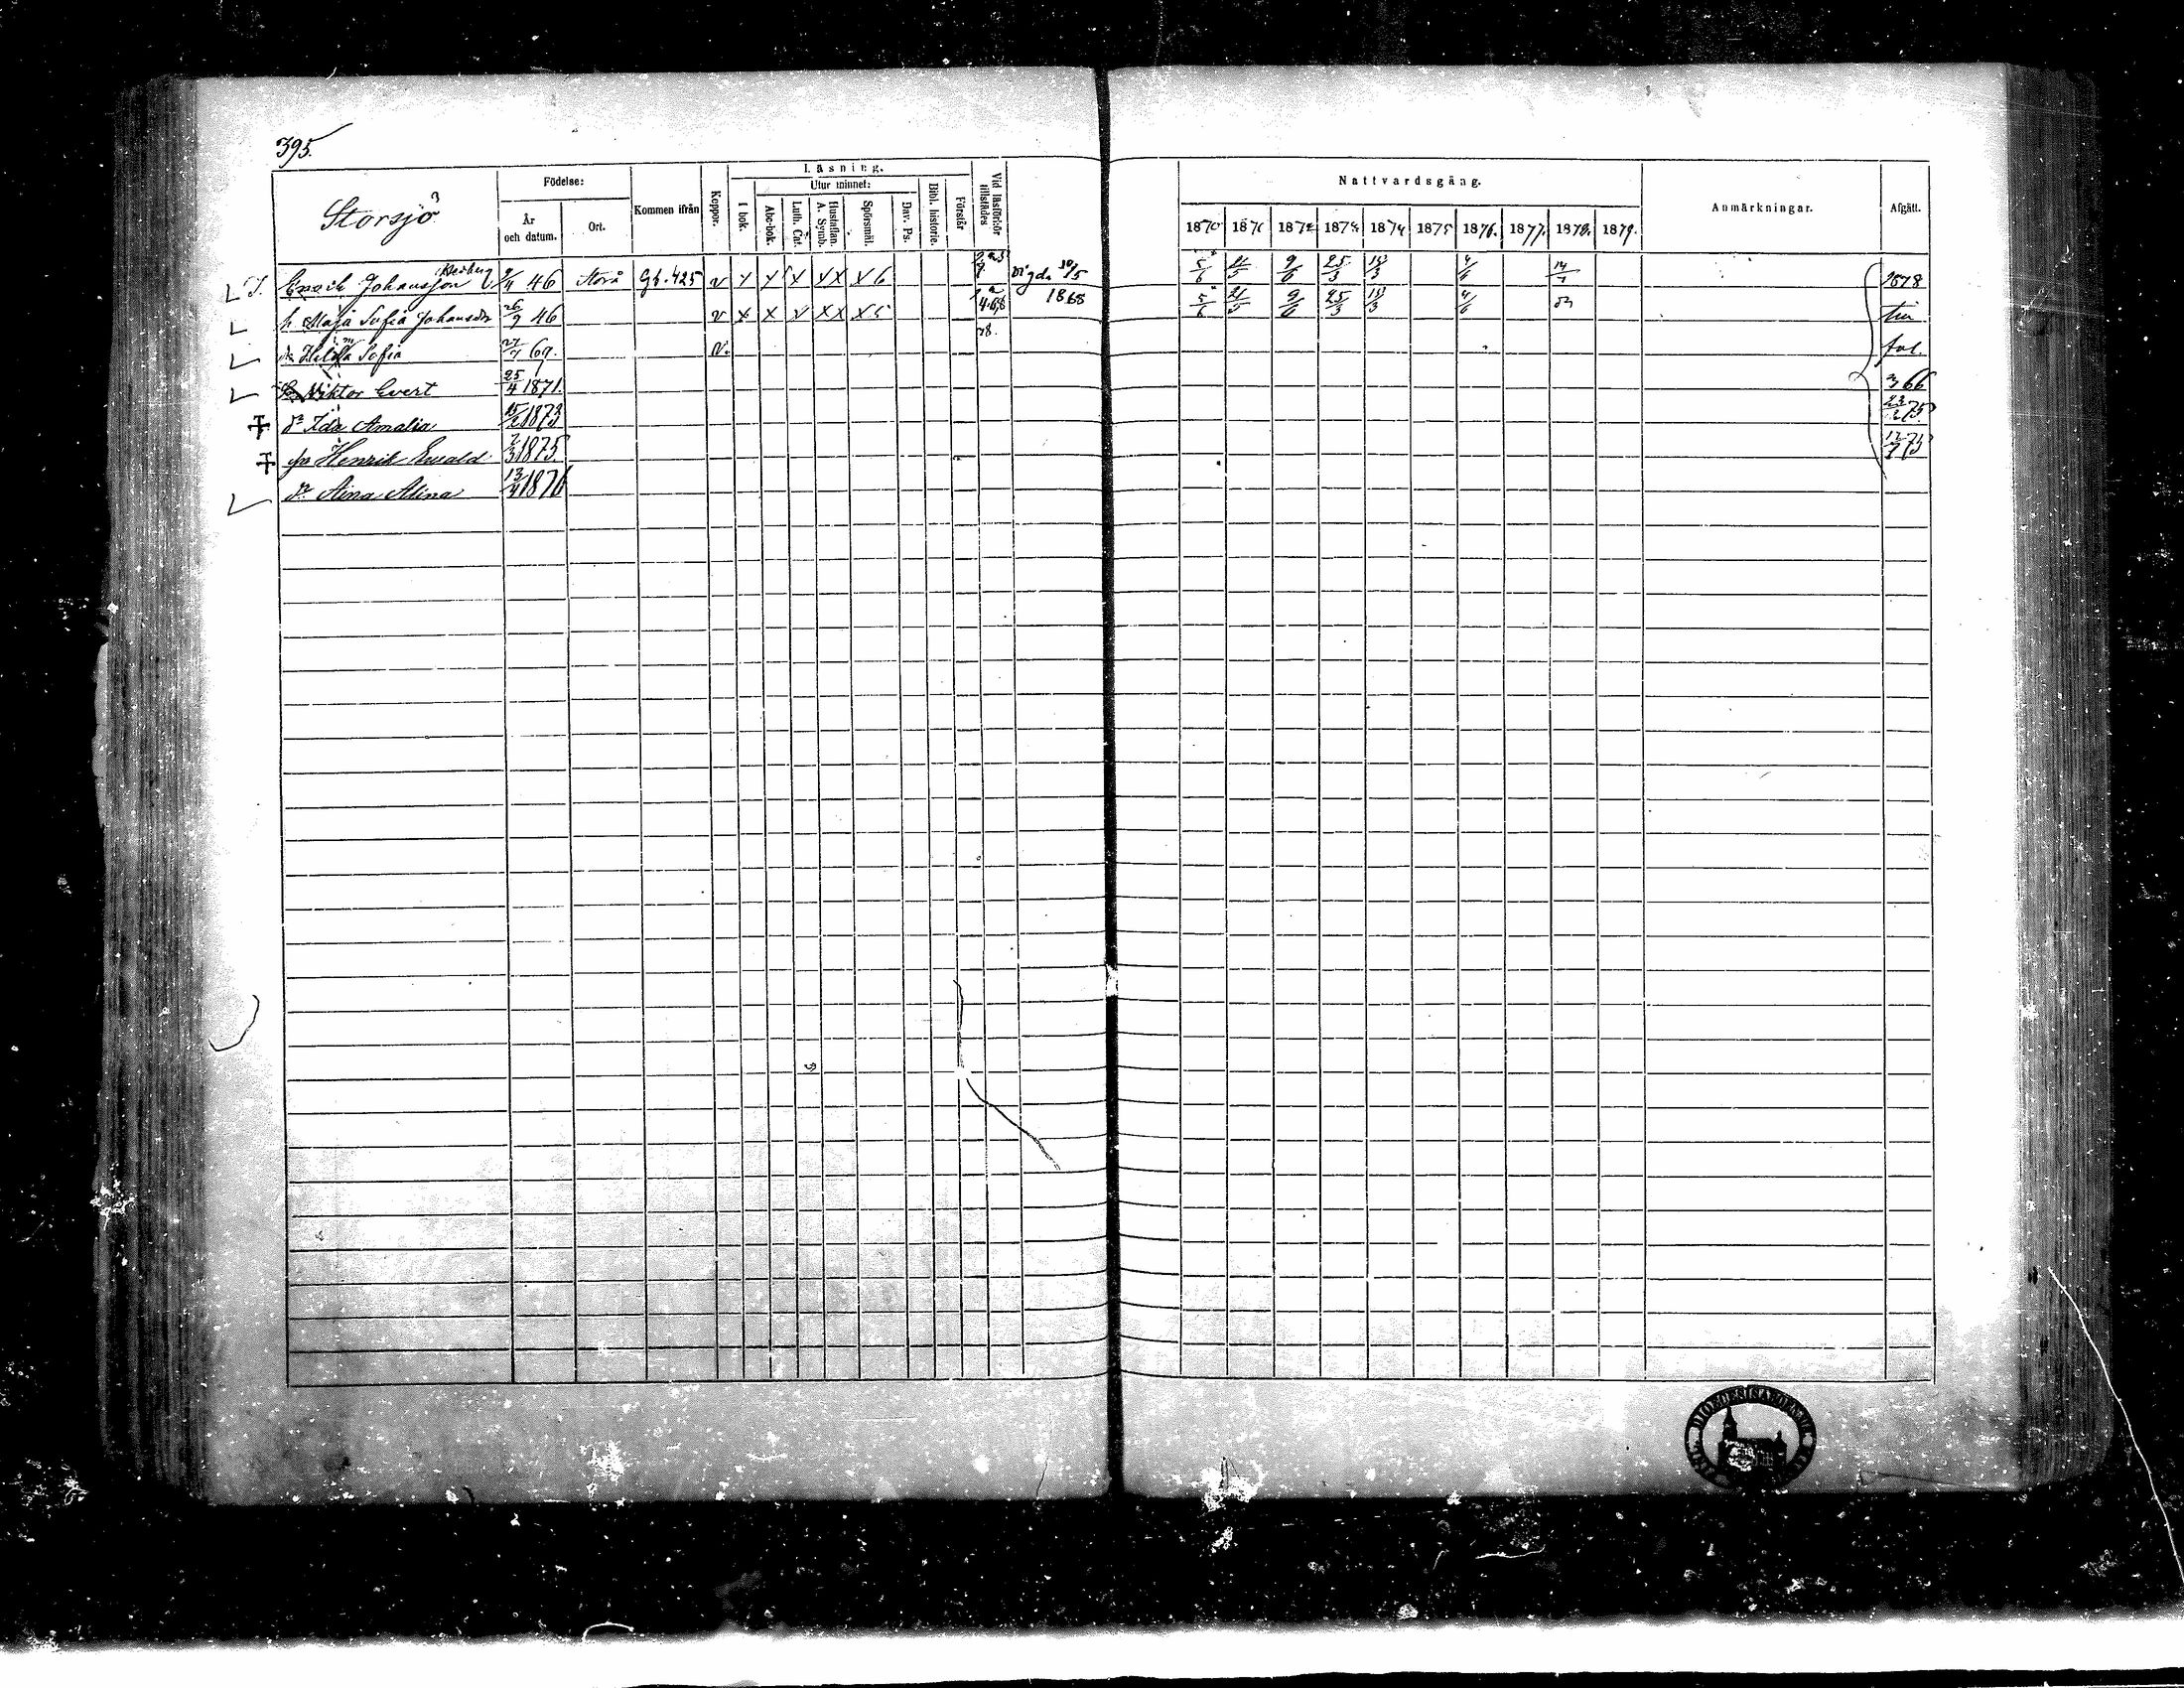 395.
Storsjö
Födelse:
År och datum.
Ort.
Kommen ifrån
Koppor.
Läsning.
I bok.
Utur minnet:
Abc-bok.
Luth. Cat.
Hustaflan. A. Symb.
Spörsmål.
Dav. Ps.
Bibl. historie.
Förstår
Vid läsförhör tillstädes
Nattvardsgång.
1870 1871 1872 1873 1874 1875 1876. 1877. 1878. 1879.
Anmärkningar.
Afgått.
Enoch Johansson 46 Storå Gb. 425 v x x x x x x 6 vigda 10/5 5/6 21/5 9/6 25/3 15/3 4/6 1878
h. Maja Sofia Johansdr 26/9 46 v x x x x x x 5 1868 5/6 21/5 9/6 25/3 15/3 4/6
dr Sofia 27/7 69. v. fol.
Viktor Evert 25/4 1871. 366
dr Ida Amalia 15/2 1873 23/2 75
son Henrik Ewald 2/3 1875
dr Aina Alina 13/4 1876